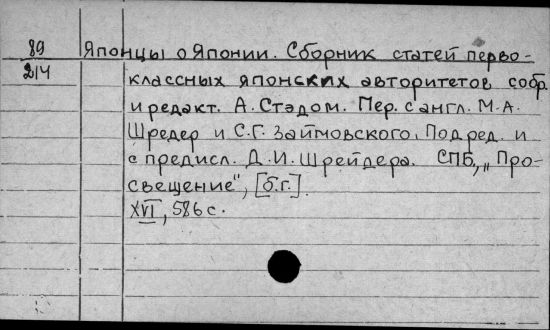 89
214
Японцы о Японии. Сборник статей перво-
классных японских авторитетов собр.
и редакт. А. Стэдом. Пер. с англ. М.А.
Шредер и С.Г. Займовского. Под ред. и
с предисл. Д.И. Шрейдера. СПБ, „Про-
свещение", [б.г.].
XVI, 586 с.